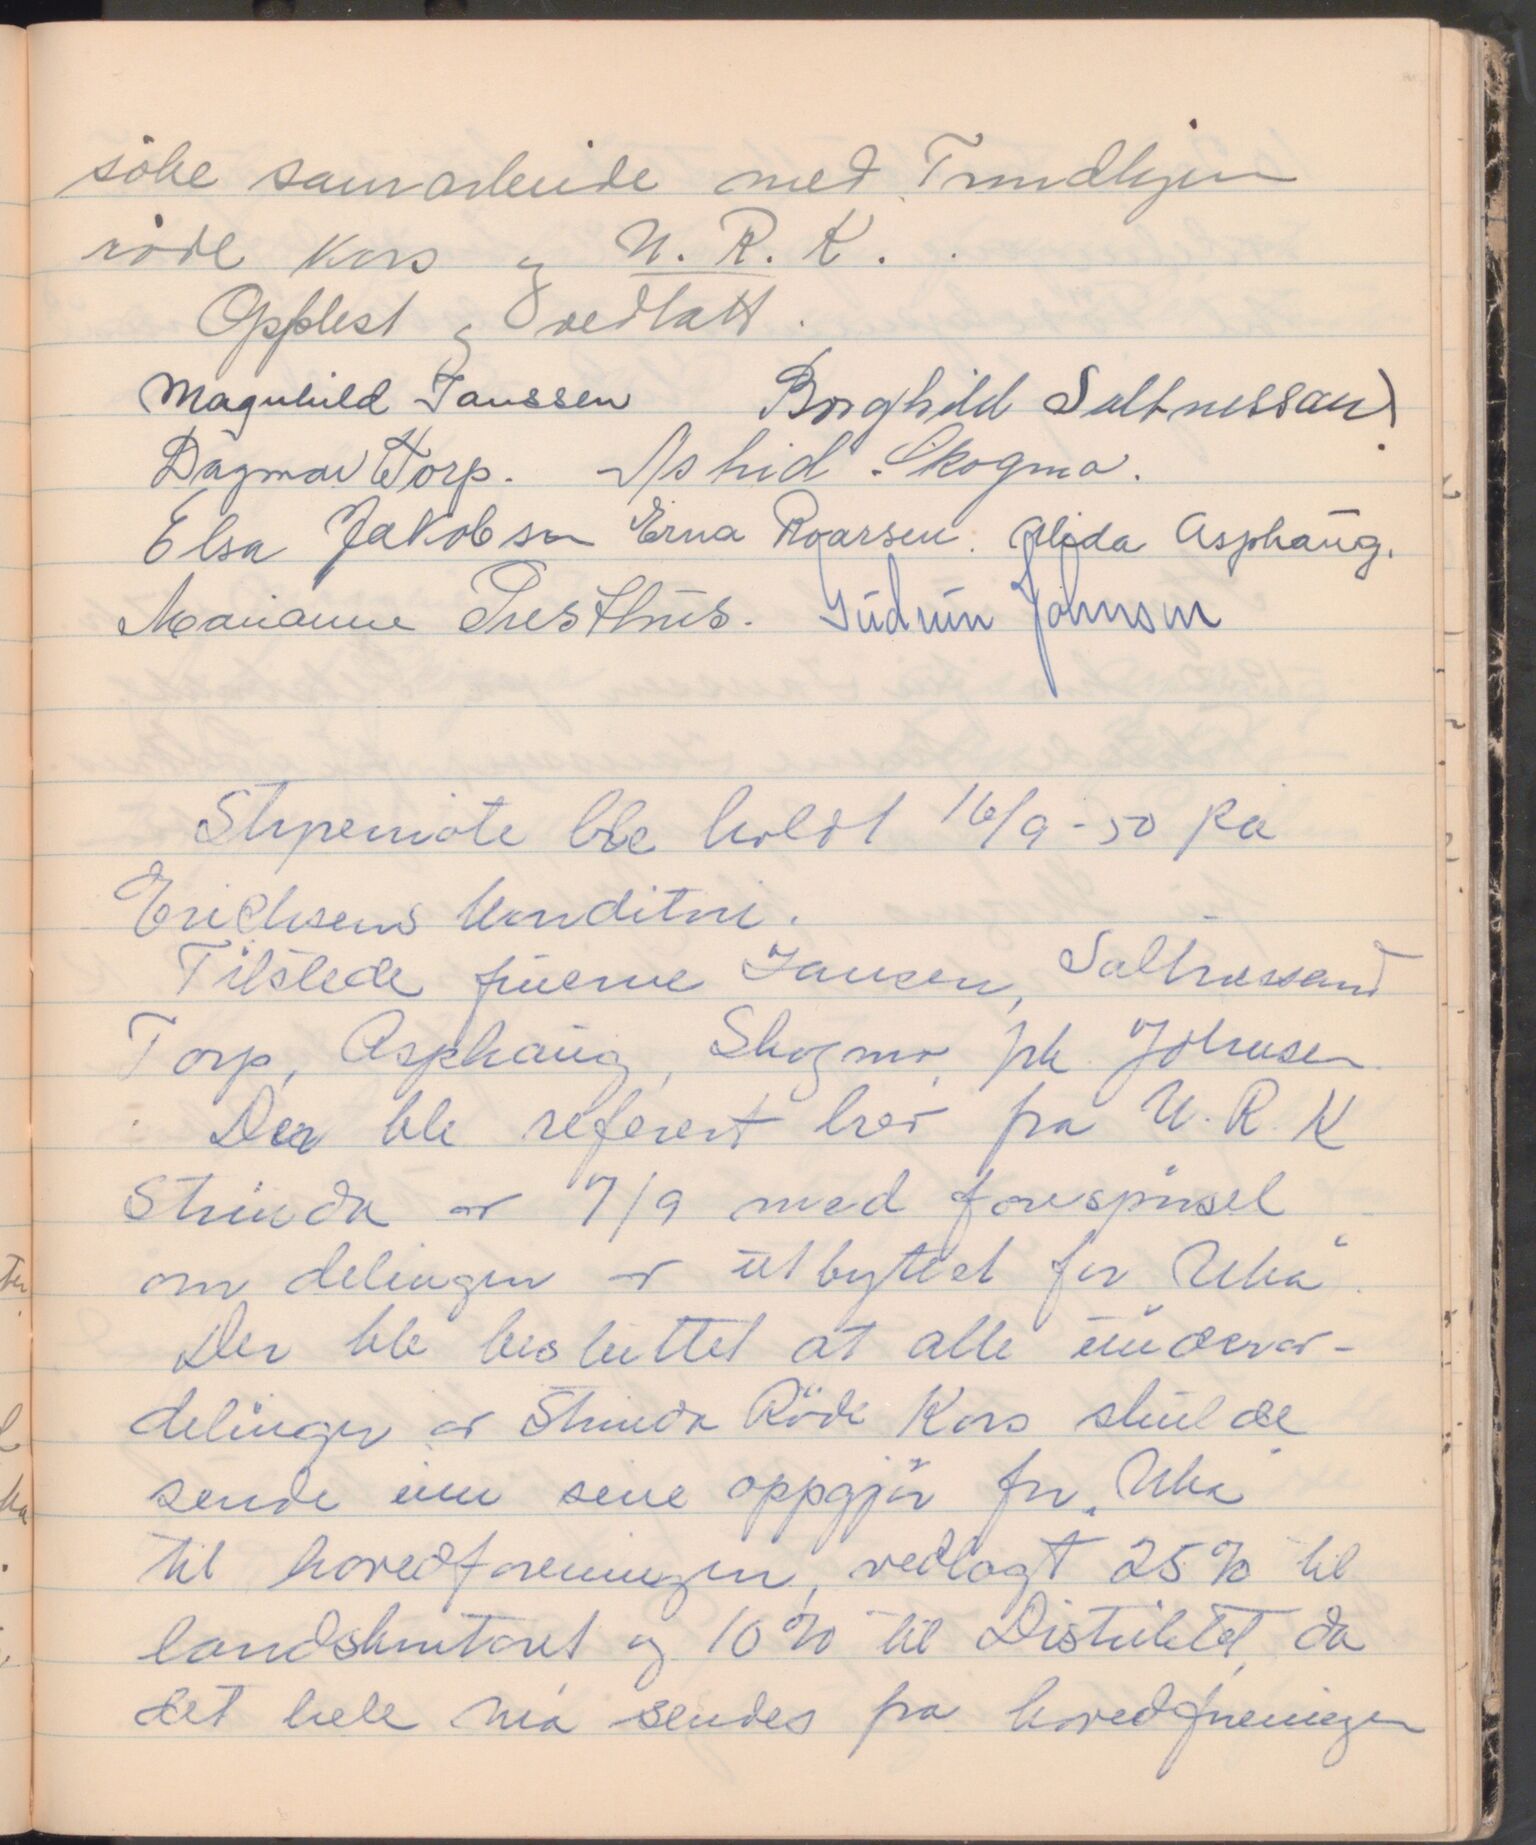 söke samarbeide med Trondhjem
röde Kors og U. R. K.
Opplest og vedtatt.
Magnhild Janssen Borghild Saltnessand
Dagmar Torp. Astrid Skogmo.
Elsa Jakobsen Erna Roarsen. Alida Asphaug.
Marianne Presthus. Gudrun Johnsen
Styremöte ble holdt 16/9-50 på
Erichsens Konditori.
Tilstede fruerne Jansen, Saltnessand
Torp, Asphaug, Skogmo, frk Johnsen
Der ble referert brev fra U. R. K
Strinda av 7/9 med forespörsel
om delingen av utbyttet for "Uka".
Der ble besluttet at alle underav-
delinger av Strinda Röde Kors skulde
sende inn sine oppgjör for "Uka"
til hovedforeningen, vedlagt 25% til
landskontoret og 10% til Distriktet, da
det hele må sendes fra hovedforeningen